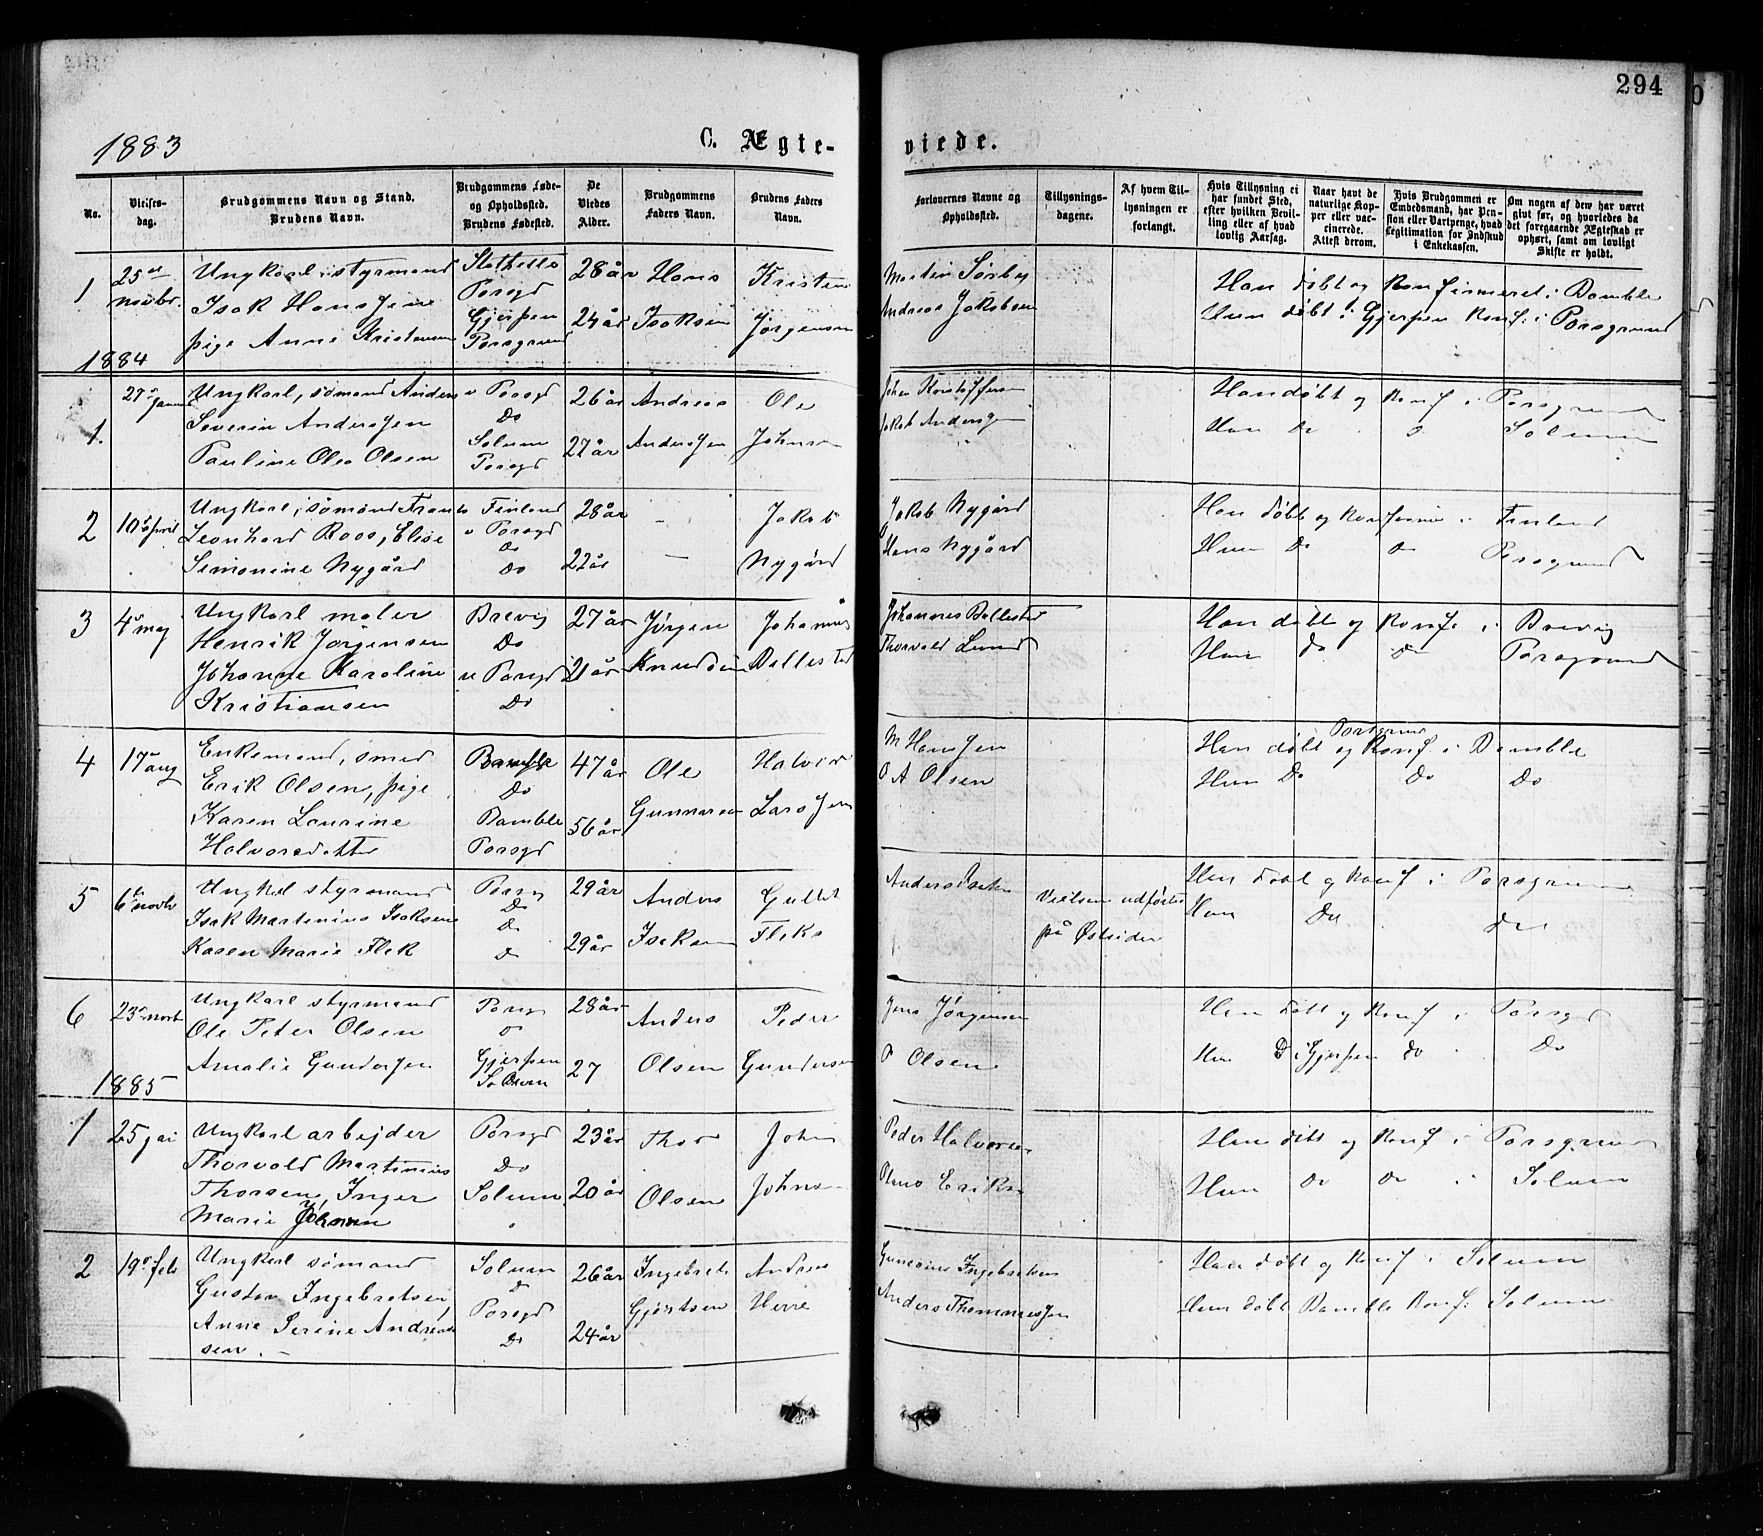 294
1883
C. Ægteviede.
No.
Vielsesdag.
Brudgommens Navn og Stand.
Brudens Navn.
Brudgommens Føde-
og Opholdssted.
Brudens Fødested.
De
Viedes
Alder.
Brudgommens
Faders Navn.
Brudens Faders
Navn.
Forlovernes Navne og
Opholdssted.
Tillysnings-
dagene.
Af hvem Til-
lysningen er
forlangt.
Hvis Tillysning ei
har fundet Sted,
efter hvilken Bevil-
ling eller af hvad
lovlig Aarsag.
Naar havt de
naturlige Kop-
per eller vac-
cinerede.
Attest derom.
Hvis Brudgommen er
Embedsmand, har Pen-
sion eller Vartpenge, hvad
Legitimation for Indskud
i Enkekassen.
Om nogen af dem har været
givt før, og hvorledes da
det foregaaende Ægteskab er
ophørt, samt om lovligt
Skifte er holdt.
1 25de Ungkarl, styrmand Stathelle 28 år Hans Kristen Martin Sørby Han døbt og Konfirmeret i Bamble
novbr. Isak Hanssen Porsgd
pige Anne Kristensen Gjerpen 24 år Isaksen Jørgensen Andreas Jakobsen Hun døbt i Gjerpen Konf: i Porsgrund
Porsgrund
1884
1. 27 Janua Ungkarl, sømand Anders Porsgd 26 år Andreas Ole Johan Kristoffersen Han døbt og Konf i Porsgrund
Severin Anderssen Do
Pauline Olea Olsen Solum 27 år Anderssen Johnsen Jakob Anderssen Hun Do Solum
Porsgd
2 10 April Ungkarl, sømand Frans Finland 28 år - Jakob Jakob Nygård Han døbt og Konf i Finland
Leonhard Roos, Elise Porsgd
Simonine Nygård Do 22 år - Nygård Hans Nygård Hun Do Do Porsgrund
Do
3 4 maj Ungkarl maler Brevig 27 år Jørgen Johannes Johannes Ballestad Han døbt og Konf i Brevig
Henrik Jørgensen Do
Johanne Karoline Porsgd 21 år Knudsen Ballestad Thorvald Lund Hun do Do Porsgrund
Kristiansen Do
4 17 aug Enkemand, smed Bamble 47 år Ole Halvor M Hanssen Han døbt Porsgrund og Konf i Bamble
Erik Olsen, pige Do
Karen Laurine Bamble 56 år Gunnarsen Larssen O A Olsen Hun Do Do Do
Halvorsdatter Porsgd
5 6 novb Ungkarl styrmand Porsg 29 år Anders Gullik Anders Isaksen Vielsen udførtes Han døbt og Konf i Porsgrund
Isak Martinius Isaksen Do
Karen Marie Flek Do 29 år Isaksen på Østsiden Hun Do do
6 23 novb Ungkarl styrmand Porsg 28 år Anders Peder Jens Jørgensen Han døbt og Konf i Porsgd
Ole Peter Olsen
Amalie Gunderssen Gjerpen 27 Olsen Gundersen P Olsen Hun D i Gjerpen do Do
Solum
1885
1 25 jai Ungkarl arbejder Porsgd 23 år Thor John Peder Halvorsen Han døbt og Konf i Porsgrund
Thorvald Martinius Do
Thorsen, Inger Solum 20 år Olsen Johnsen Hans Eriksen Hun Do Do Solum
Marie Johnsen
2 19 feb Ungkarl sømand Solum 26 år Ingebret Andreas Ingebretsen Han døbt og Konf i Solum
Gustav Ingebretsen, Do
Anne Serine Andrea- Porsgd 24 år Gjertsen Herre Anders Thommessen Hun døbt Bamble Konf: Solum
sen. - Do